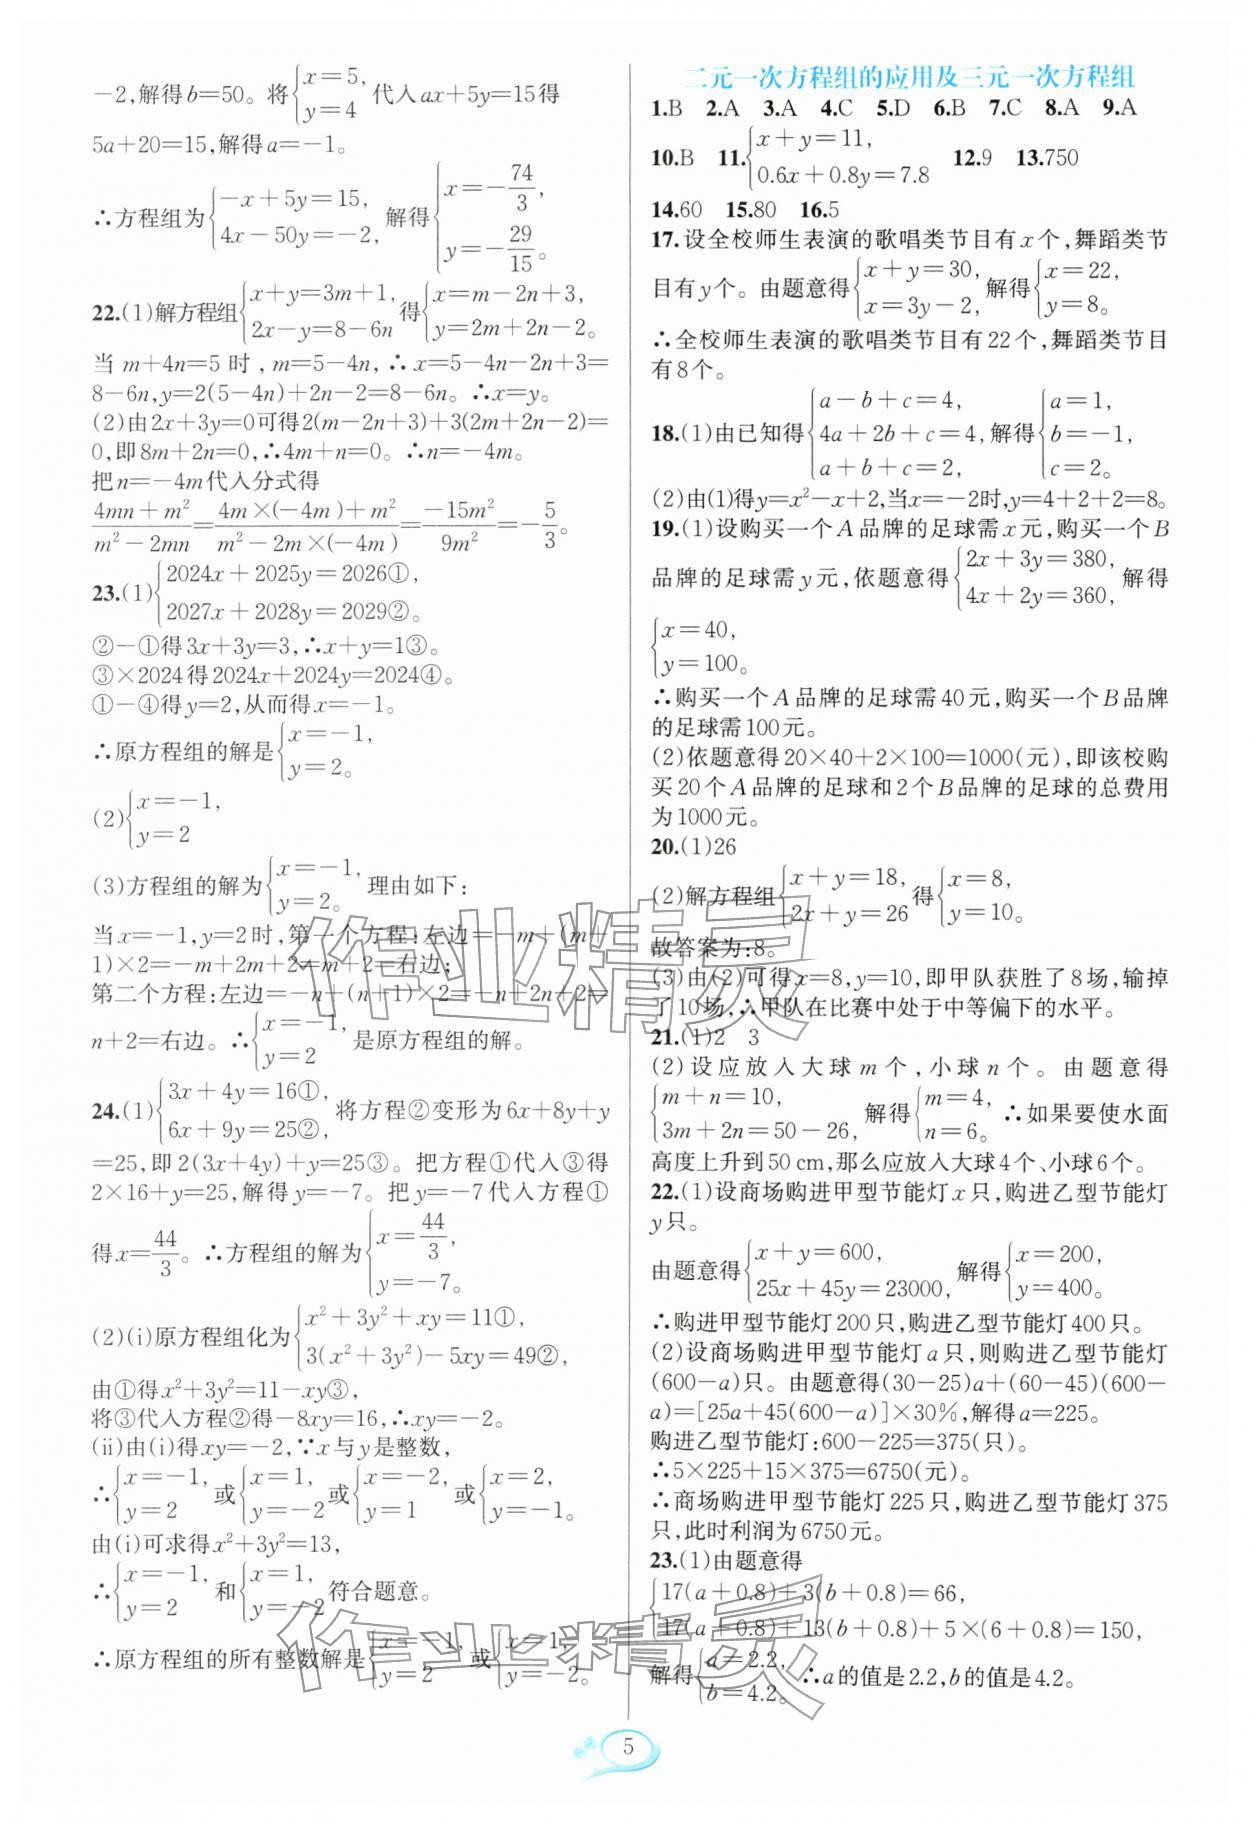 -2,解得b=50。将{x=5, y=4 代入ax+5y=15得
5a+20=15,解得a=-1。
∴方程组为{-x+5y=15, 4x-50y=-2, 解得{x=-74/3, y=-29/15。
22.(1)解方程组{x+y=3m+1, 2x-y=8-6n 得{x=m-2n+3, y=2m+2n-2。
当m+4n=5时,m=5-4n,∴x=5-4n-2n+3=
8-6n,y=2(5-4n)+2n-2=8-6n。∴x=y。
(2)由2x+3y=0可得2(m-2n+3)+3(2m+2n-2)=
0,即8m+2n=0,∴4m+n=0。∴n=-4m。
把n=-4m代入分式得
(4mn+m²)/(m²-2mn)=(4m×(-4m)+m²)/(m²-2m×(-4m))=(-15m²)/(9m²)=-5/3。
23.(1){2024x+2025y=2026①, 2027x+2028y=2029②。
②-①得3x+3y=3,∴x+y=1③。
③×2024得2024x+2024y=2024④。
①-④得y=2,从而得x=-1。
∴原方程组的解是{x=-1, y=2。
(2){x=-1, y=2
(3)方程组的解为{x=-1, y=2。理由如下:
当x=-1,y=2时,第一个方程:左边=-m+(m+
1)×2=-m+2m+2=m+2=右边;
第二个方程:左边=-n+(n+1)×2=-n+2n+2=
n+2=右边。∴{x=-1, y=2 是原方程组的解。
24.(1){3x+4y=16①, 6x+9y=25②, 将方程②变形为6x+8y+y
=25,即2(3x+4y)+y=25③。把方程①代入③得
2×16+y=25,解得y=-7。把y=-7代入方程①
得x=44/3。∴方程组的解为{x=44/3, y=-7。
(2)(i)原方程组化为{x²+3y²+xy=11①, 3(x²+3y²)-5xy=49②,
由①得x²+3y²=11-xy③,
将③代入方程②得-8xy=16,∴xy=-2。
(ii)由(i)得xy=-2,∵x与y是整数,
∴{x=-1, y=2 或{x=1, y=-2 或{x=-2, y=1 或{x=2, y=-1。
由(i)可求得x²+3y²=13,
∴{x=-1, y=2 和{x=1, y=-2 符合题意。
∴原方程组的所有整数解是{x=-1, y=2 或{x=1, y=-2。
二元一次方程组的应用及三元一次方程组
1.B 2.A 3.A 4.C 5.D 6.B 7.C 8.A 9.A
10.B 11.{x+y=11, 0.6x+0.8y=7.8 12.9 13.750
14.60 15.80 16.5
17.设全校师生表演的歌唱类节目有x个,舞蹈类节
目有y个。由题意得{x+y=30, x=3y-2, 解得{x=22, y=8。
∴全校师生表演的歌唱类节目有22个,舞蹈类节目
有8个。
18.(1)由已知得{a-b+c=4, 4a+2b+c=4, a+b+c=2, 解得{a=1, b=-1, c=2。
(2)由(1)得y=x²-x+2,当x=-2时,y=4+2+2=8。
19.(1)设购买一个A品牌的足球需x元,购买一个B
品牌的足球需y元,依题意得{2x+3y=380, 4x+2y=360, 解得
{x=40, y=100。
∴购买一个A品牌的足球需40元,购买一个B品牌
的足球需100元。
(2)依题意得20×40+2×100=1000(元),即该校购
买20个A品牌的足球和2个B品牌的足球的总费用
为1000元。
20.(1)26
(2)解方程组{x+y=18, 2x+y=26 得{x=8, y=10。
故答案为:8。
(3)由(2)可得x=8,y=10,即甲队获胜了8场,输掉
了10场,∴甲队在比赛中处于中等偏下的水平。
21.(1)2 3
(2)设应放入大球m个,小球n个。由题意得
{m+n=10, 3m+2n=50-26, 解得{m=4, n=6。∴如果要使水面
高度上升到50 cm,那么应放入大球4个、小球6个。
22.(1)设商场购进甲型节能灯x只,购进乙型节能灯
y只。
由题意得{x+y=600, 25x+45y=23000, 解得{x=200, y=400。
∴购进甲型节能灯200只,购进乙型节能灯400只。
(2)设商场购进甲型节能灯a只,则购进乙型节能灯
(600-a)只。由题意得(30-25)a+(60-45)(600-
a)=[25a+45(600-a)]×30%,解得a=225。
购进乙型节能灯:600-225=375(只)。
∴5×225+15×375=6750(元)。
∴商场购进甲型节能灯225只,购进乙型节能灯375
只,此时利润为6750元。
23.(1)由题意得
{17(a+0.8)+3(b+0.8)=66, 17(a+0.8)+13(b+0.8)+5×(6+0.8)=150,
解得{a=2.2, b=4.2。∴a的值是2.2,b的值是4.2。
作业精灵
作业精灵
5